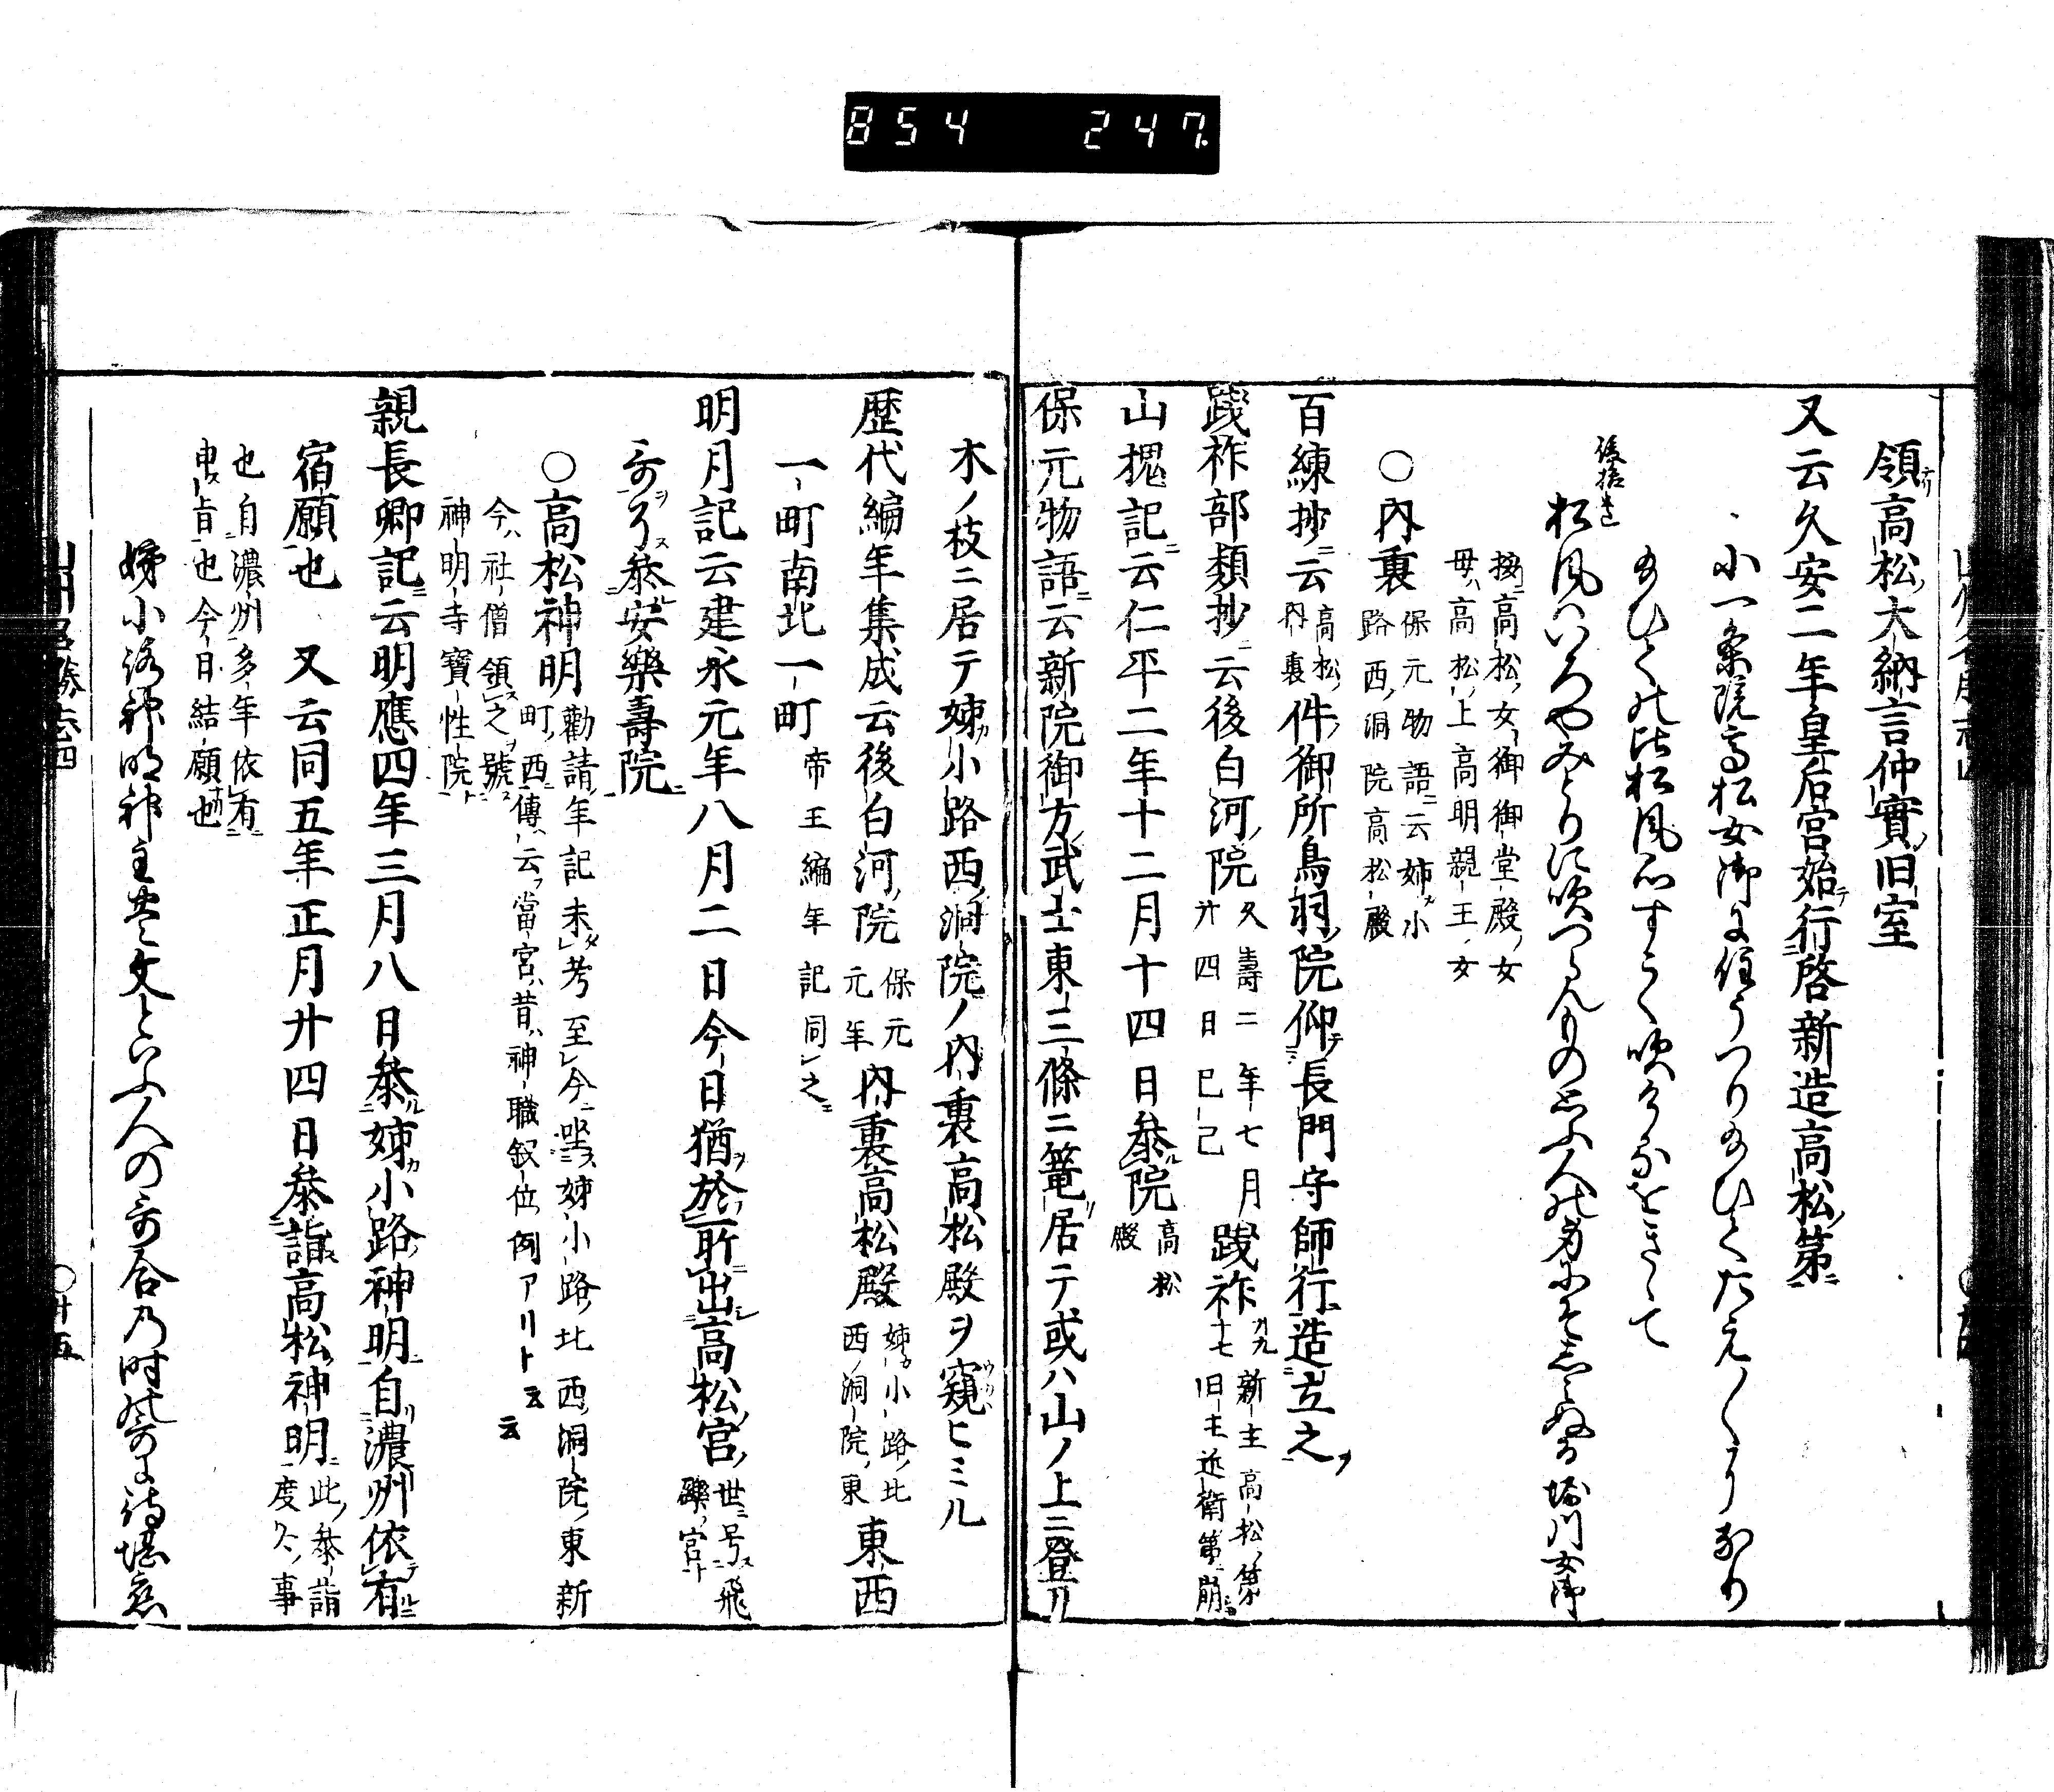 854 247
領高松大納言仲實旧室
又云久安二年皇后宮始行啓新造高松第
小一条院高松女御に住うつり給ひてたえ〱になり
給ひての比松風心すこく吹けるをきゝて
後拾遺
松風ハいろやみとりに吹つらんものおもふ人の身にそしみぬる 堀川女御
按高松女御御堂殿女
母高松上高明親王女
〇内裏 保元物語云姉小
路西洞院高松殿
百練抄云 高松
内裏 件御所鳥羽院仰長門守師行造立之
践祚部類抄云後白河院 久壽二年七月
廿四日己巳 践祚 廿九
十七 新主高松第
旧主近衛第崩
山槐記云仁平二年十二月十四日参院 高松
殿
保元物語云新院御方武士東三條ニ篭居テ或ハ山ノ上ニ登リ
木ノ枝ニ居テ姉小路西洞院ノ内裏高松殿ヲ窺ヒミル
歴代編年集成云後白河院 保元
元年 内裏高松殿 姉小路北
西洞院東 東西
一町南北一町 帝王編年記同之
明月記云建永元年八月二日今日猶於所出高松宮 世号飛
礫宮
参安樂壽院
〇高松神明 勸請年記未考至今坐姉小路北西洞院東新
町西傳云當宮昔神職叙位例アリト云云
今社僧領之號
神明寺寶性院
親長卿記云明應四年三月八日参姉小路神明自濃州依有
宿願也 又云同五年正月廿四日参詣高松神明 此参詣
度々事
也自濃州多年依有
申旨也今日結願也
姉小路神明神主 文といふ人の哥合の時 哥に待 恋
〇廿五